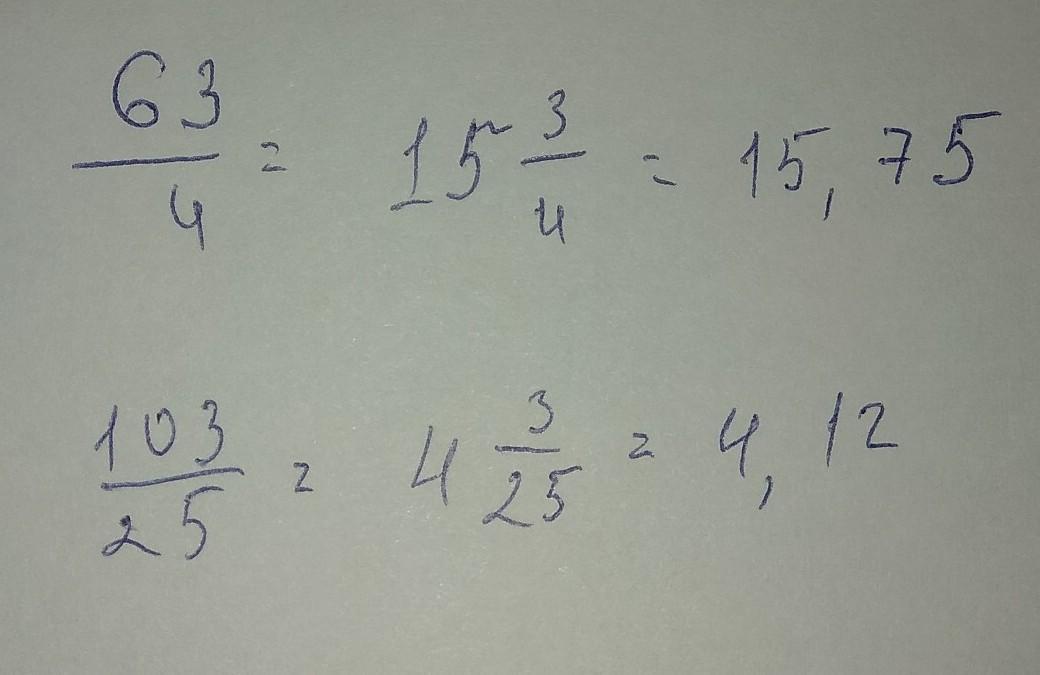 63/4 = 15 3/4 = 15,75
103/25 = 4 3/25 = 4,12